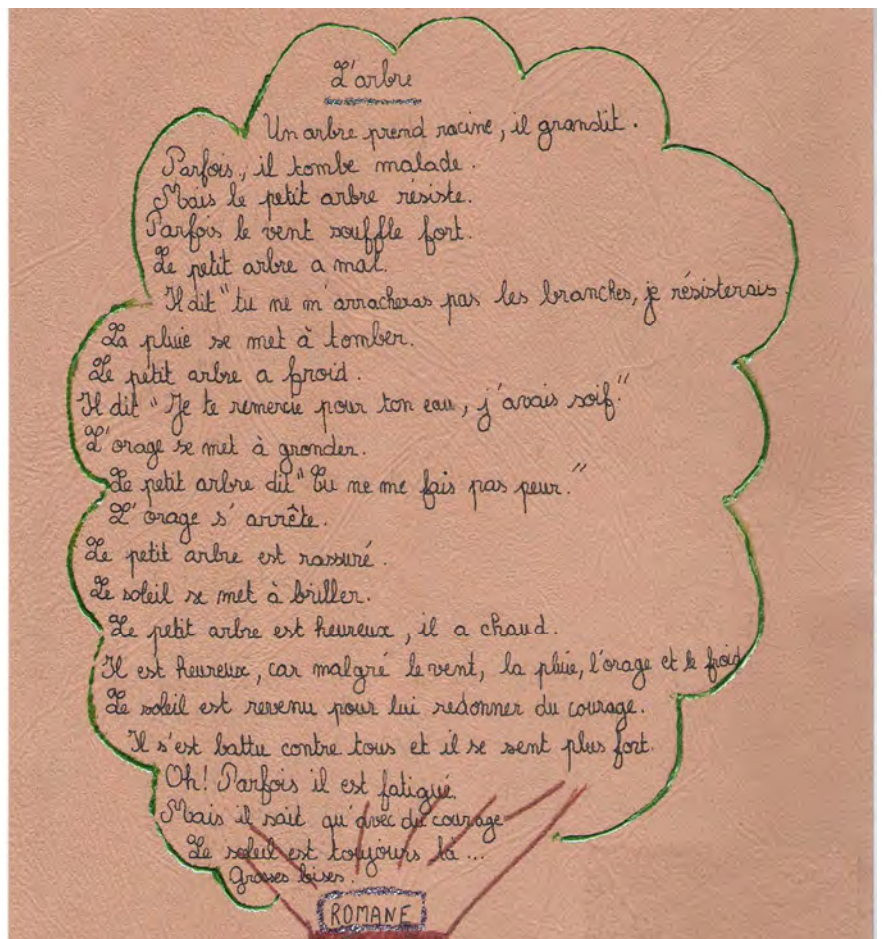 L'arbre
Un arbre prend racine, il grandit.
Parfois, il tombe malade.
Mais le petit arbre résiste.
Parfois le vent souffle fort.
Le petit arbre a mal.
Il dit "tu ne m'arracheras pas les branches, je résisterais
La pluie se met à tomber.
Le petit arbre a froid.
Il dit "Je te remercie pour ton eau, j'avais soif."
L'orage se met à gronder.
Le petit arbre dit "Tu ne me fais pas peur."
L'orage s'arrête.
Le petit arbre est rassuré.
Le soleil se met à briller.
Le petit arbre est heureux, il a chaud.
Il est heureux, car malgré le vent, la pluie, l'orage et le froid
Le soleil est revenu pour lui redonner du courage.
Il s'est battu contre tous et il se sent plus fort.
Oh! Parfois il est fatigué
Mais il sait qu'avec du courage
Le soleil est toujours là ...
Grosses bises.
ROMANE